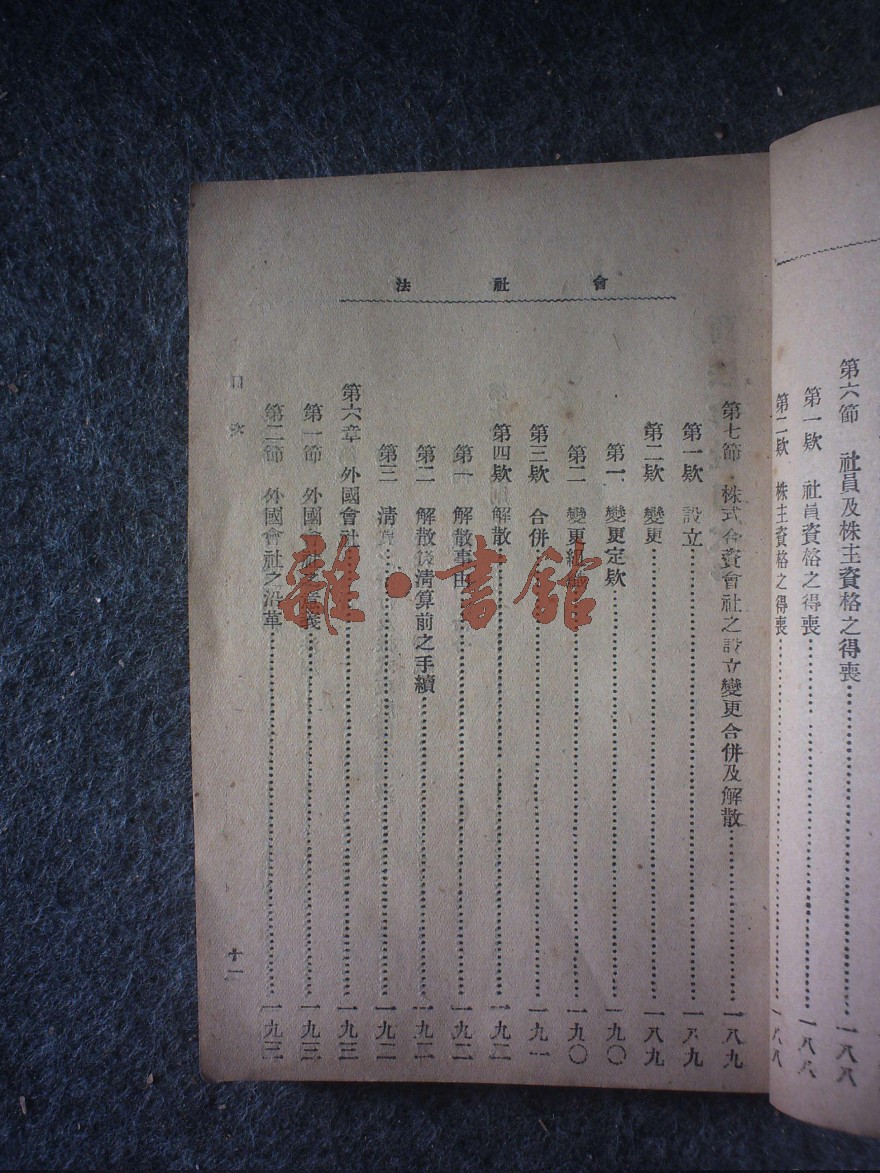 會社法
第六節　社員及株主資格之得喪……一八八
第一欵　社員資格之得喪……一八八
第二欵　株主資格之得喪……一八八
第七節　株式合資會社之設立變更合併及解散……一八九
第一欵　設立……一八九
第二欵　變更……一八九
第一　變更定欵……一九〇
第二　變更組……一九〇
第三欵　合併……一九一
第四欵　解散……一九二
第一　解散事由……一九二
第二　解散後清算前之手續……一九二
第三　清算……一九二
第六章　外國會社……一九三
第一節　外國會社之意義……一九三
第二節　外國會社之沿革……一九三
目次
十一
雜·書館